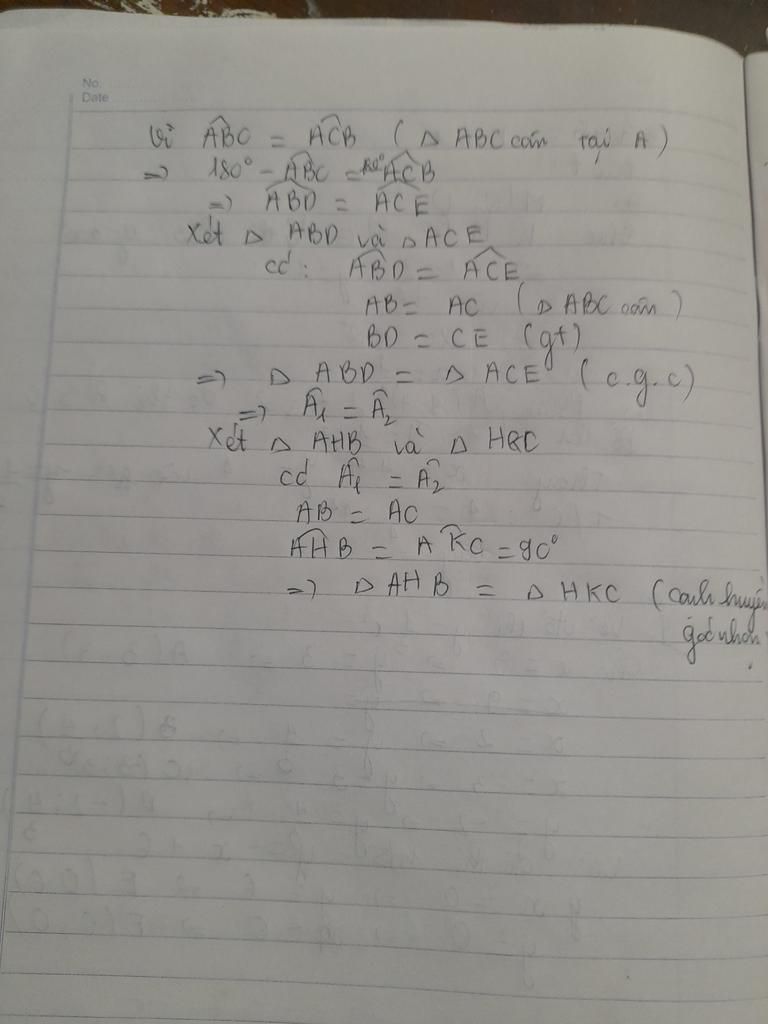 No.
Date
Vì ABC = ACB ( Δ ABC cân tại A )
=> 180° - ABC = 180° ACB
=> ABD = ACE
Xét Δ ABD và Δ ACE
có : ABD = ACE
AB = AC ( Δ ABC cân )
BD = CE (gt)
=> Δ ABD = Δ ACE ( c.g.c )
=> Â₁ = Â₂
Xét Δ AHB và Δ
có Â₁ = Â₂
AB = AC
AHB = AKC = 90°
=> Δ AHB = Δ HKC ( cạnh huyền
góc nhọn